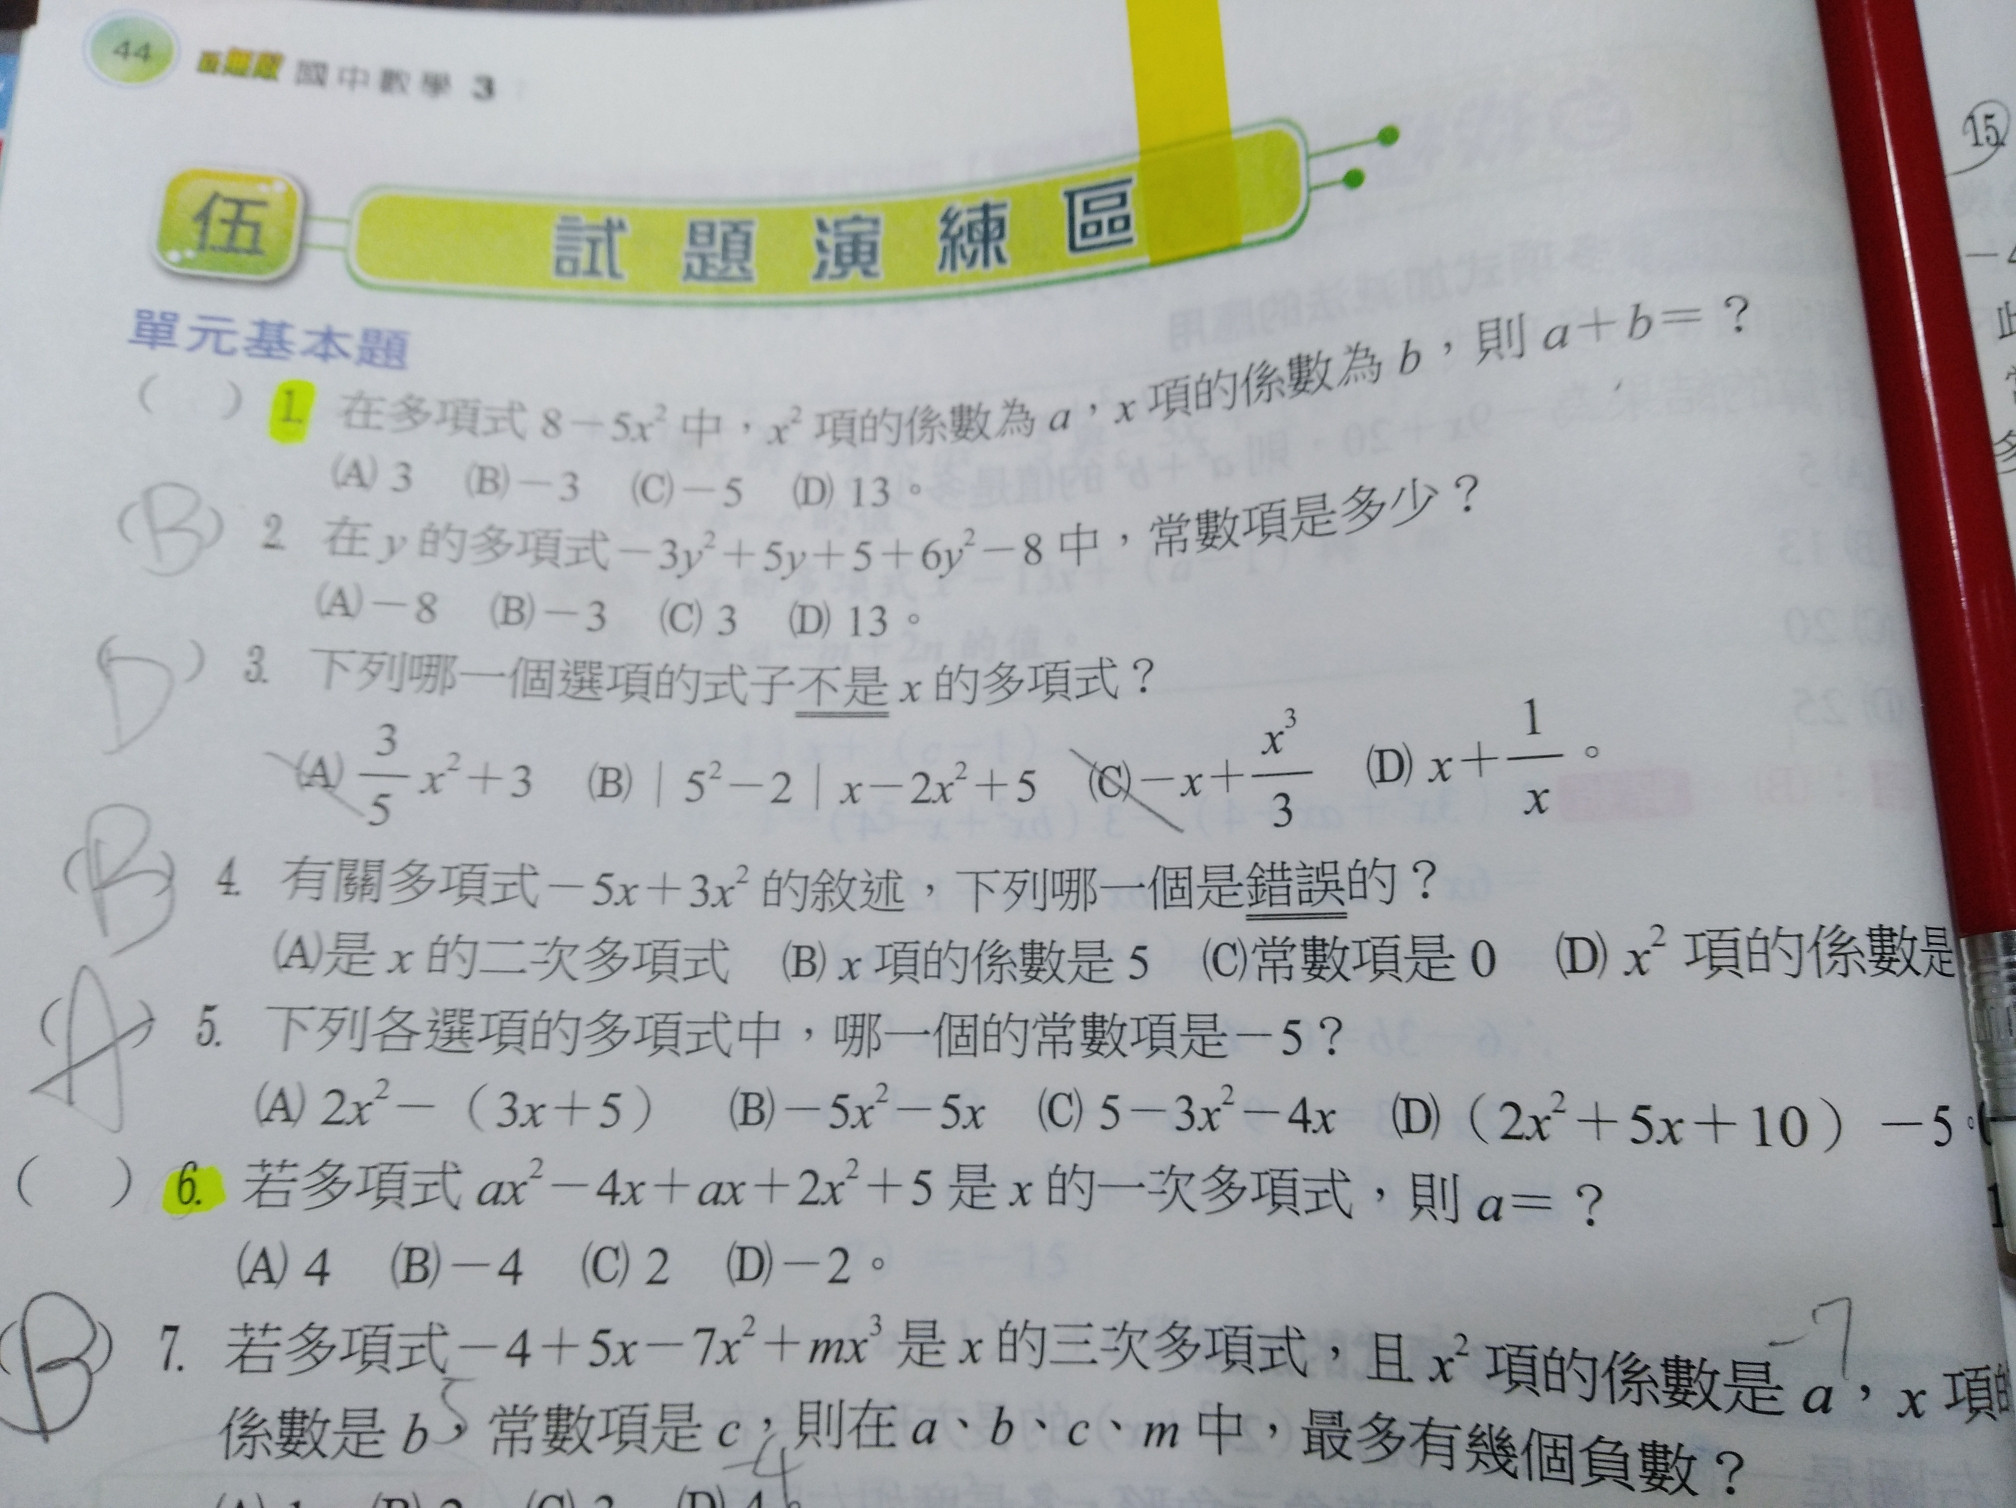 44 國中數學 3
伍 試題演練區
單元基本題
( ) 1. 在多項式 8－5x² 中，x² 項的係數為 a，x 項的係數為 b，則 a＋b＝？
(A) 3 (B)－3 (C)－5 (D) 13。
(B) 2. 在 y 的多項式－3y²＋5y＋5＋6y²－8 中，常數項是多少？
(A)－8 (B)－3 (C) 3 (D) 13。
(D) 3. 下列哪一個選項的式子不是 x 的多項式？
(A) 3/5 x²＋3 (B)｜5²－2｜x－2x²＋5 (C)－x＋x³/3 (D) x＋1/x。
(B) 4. 有關多項式－5x＋3x² 的敘述，下列哪一個是錯誤的？
(A)是 x 的二次多項式 (B) x 項的係數是 5 (C)常數項是 0 (D) x² 項的係數是
(A) 5. 下列各選項的多項式中，哪一個的常數項是－5？
(A) 2x²－（3x＋5） (B)－5x²－5x (C) 5－3x²－4x (D)（2x²＋5x＋10）－5。
( ) 6. 若多項式 ax²－4x＋ax＋2x²＋5 是 x 的一次多項式，則 a＝？
(A) 4 (B)－4 (C) 2 (D)－2。
-7
(B) 7. 若多項式－4＋5x－7x²＋mx³ 是 x 的三次多項式，且 x² 項的係數是 a，x 項的
5
係數是 b，常數項是 c，則在 a、b、c、m 中，最多有幾個負數？
-4
(A) 1 (B) 2 (C) 3 (D) 4。
15.